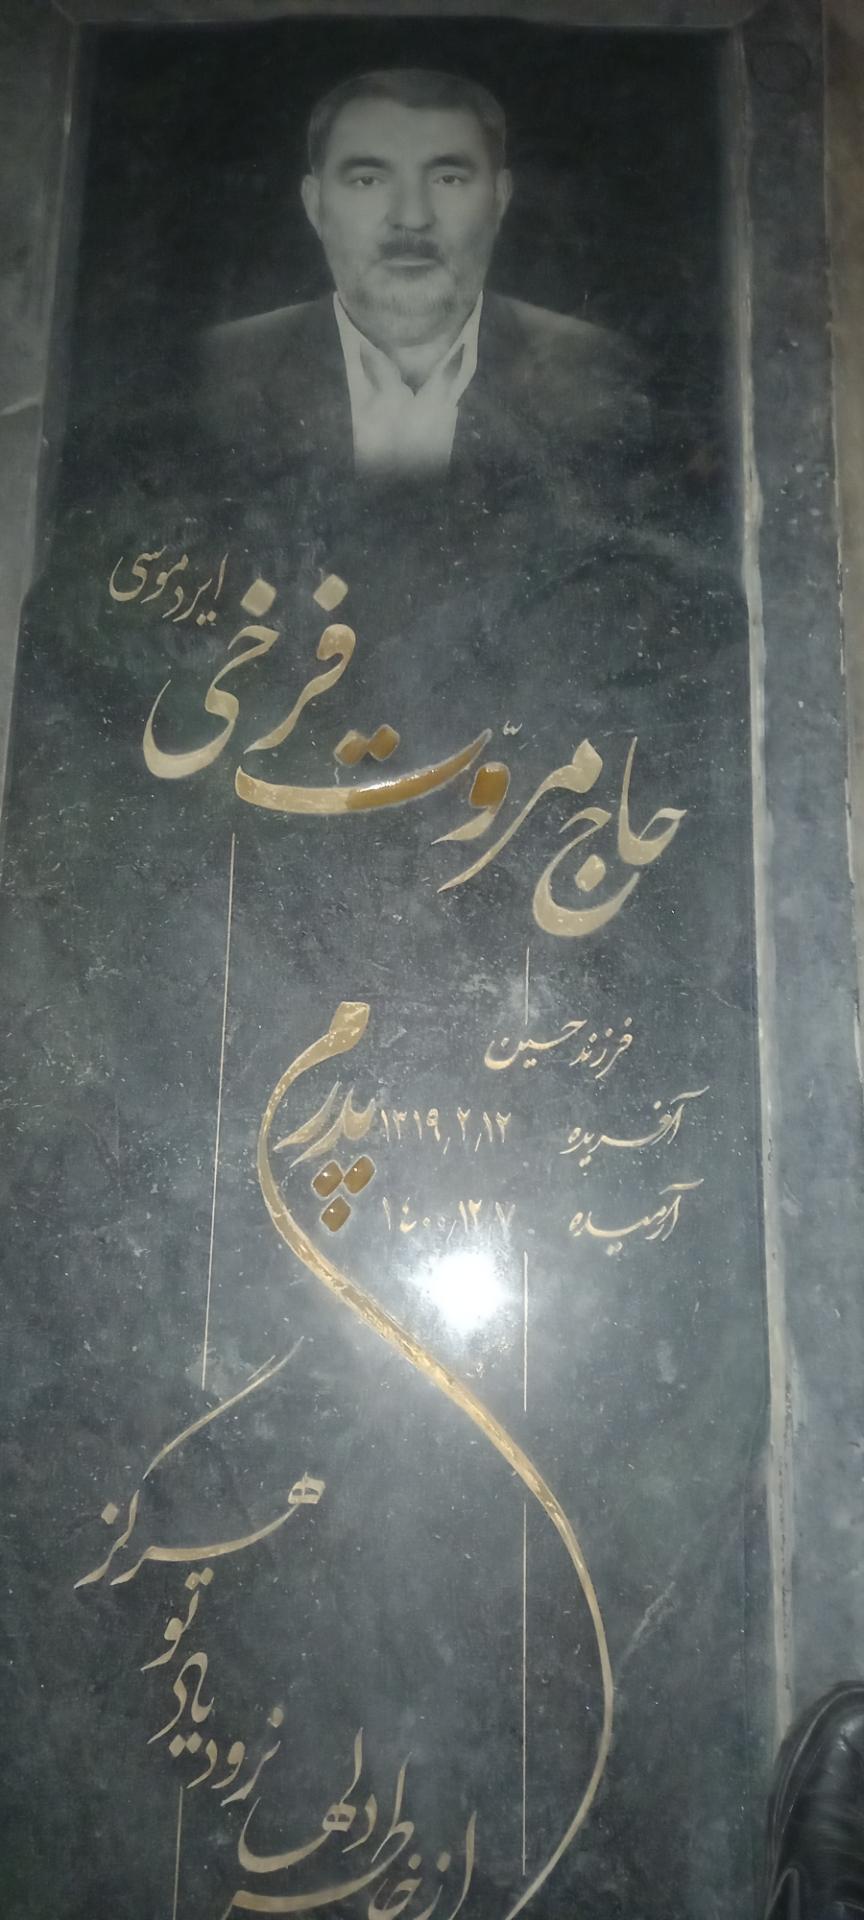 حاج مروّت فرخی
ایردموسی
فرزند حسین
آفریده ۱۳۱۹٫۲٫۱۲
آرمیده ۱۴۰۰٫۱۲٫۷
پدرم
هرگز
تو
یاد
نرود
دلها
از خاطر